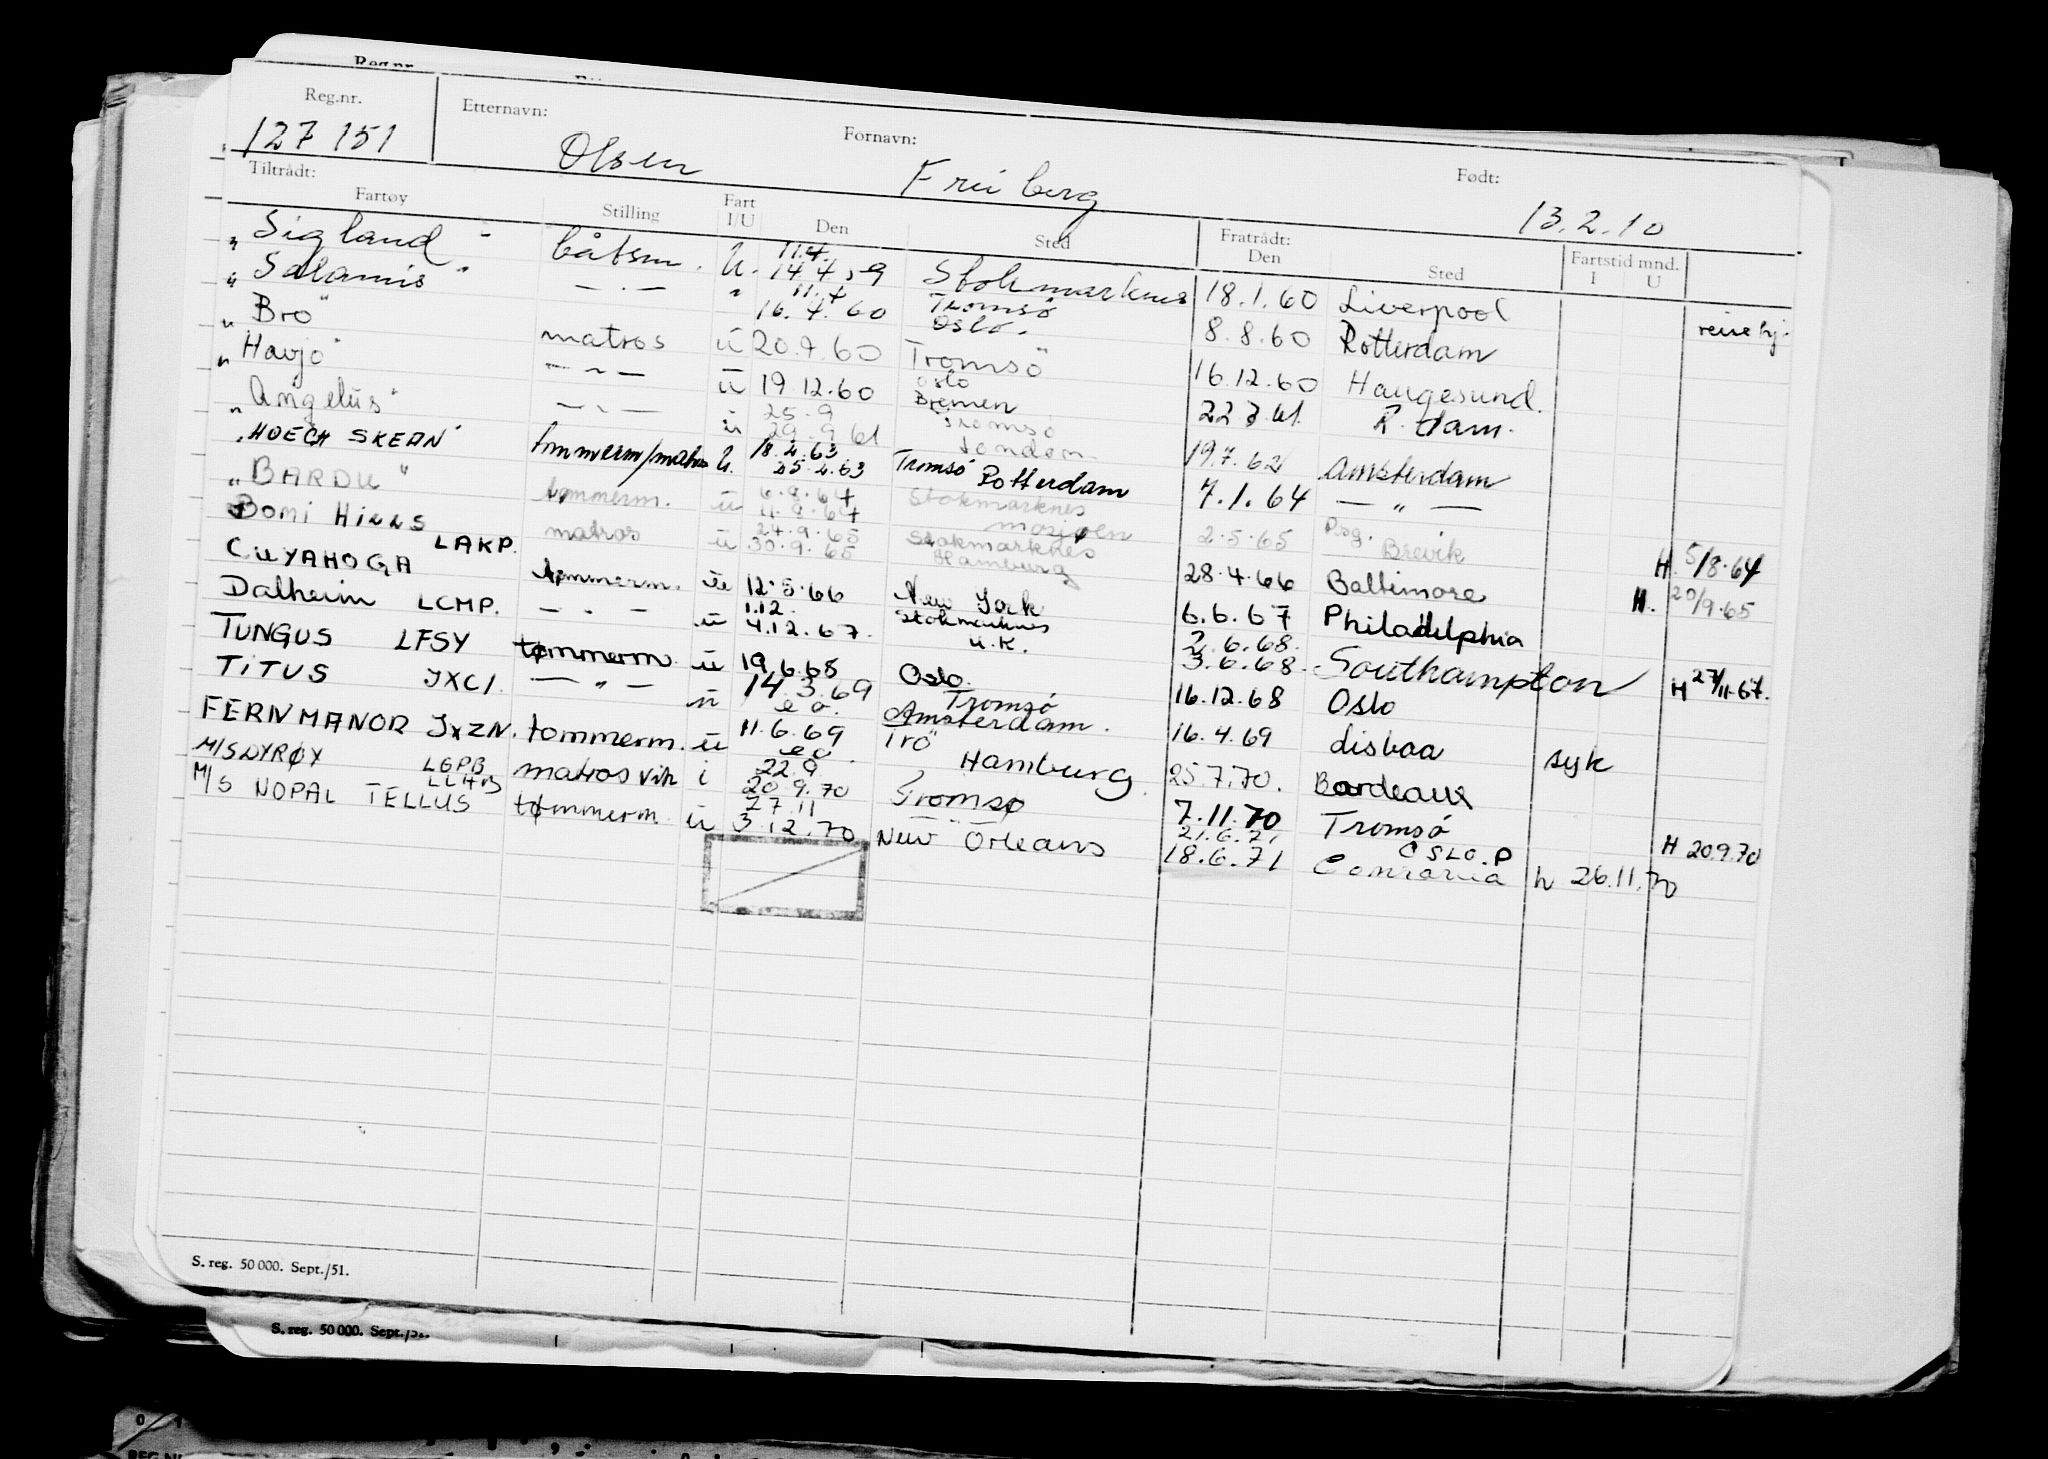 Reg.nr.
Reg.nr. Etternavn: Fornavn: Født:
127 151 Olsen Freiberg 13.2.10
Tiltrådt: Fratrådt:
Fartøy Stilling Fart I/U Den Sted Den Sted Fartstid mnd. I U
"Sigland" båtsm. U. 11.4. 14.4.59 Stokmarknes 18.1.60 Liverpool
"Salamis" — . — " 11.4 16.4.60 Tromsö Oslo. 8.8.60 Rotterdam reise hj.
"Bro" matros ü 20.9.60 Tromsö 16.12.60 Haugesund.
"Havjo" — " — ü 19.12.60 Oslo Bremen 22 3 61. R.dam.
"Angelus" — " — ü 25.9 29.9.61 Tromsö London 19.7.62 Amsterdam
"HOEGH SKEAN" tømmerm/matros U. 18.4.63 25.4.63 Tromsö Rotterdam 7.1.64 — " —
"BARDU" tømmerm. ü 6.8.64 11.8.64 Stokmarknes Mosjøen 2.5.65 Psg. Brevik H. 5/8.64
Bomi Hills LAKP. matros ü 24.9.65 30.9.65 Stokmarknes Hamburg 28.4.66 Baltimore H. 20/9.65
CUYAHOGA tømmerm. ü 12.5.66 New York 6.6.67 Philadelphia
Dalheim LCMP. — . — ü 1.12. 4.12.67. Stokmarknes U.K. 2.6.68. 3.6.68. Southampton H 27/11.67.
TUNGUS LFSY tømmerm. ü 19.6.68 Oslo. 16.12.68 Oslo
TITUS JXCI. — " — ü 14.3.69 e.o. Tromsö Amsterdam. 16.4.69 Lisboa syk
FERNMANOR JXZN. tømmerm. ü 11.6.69 eo. Trö Hamburg. 25.7.70. Bordeaux
M/S DYRØY LGPB matros vik i 22.9 20.9.70 Tromsø 7.11.70 Tromsö H 20.9.70
M/S NOPAL TELLUS LLHB tømmerm. ü 27.11 3.12.70 — " — New Orleans 21.6.71 18.6.71 OSLO.P h 26.11.70
S. reg. 50 000. Sept./51.
S. reg. 50 000. Sept./